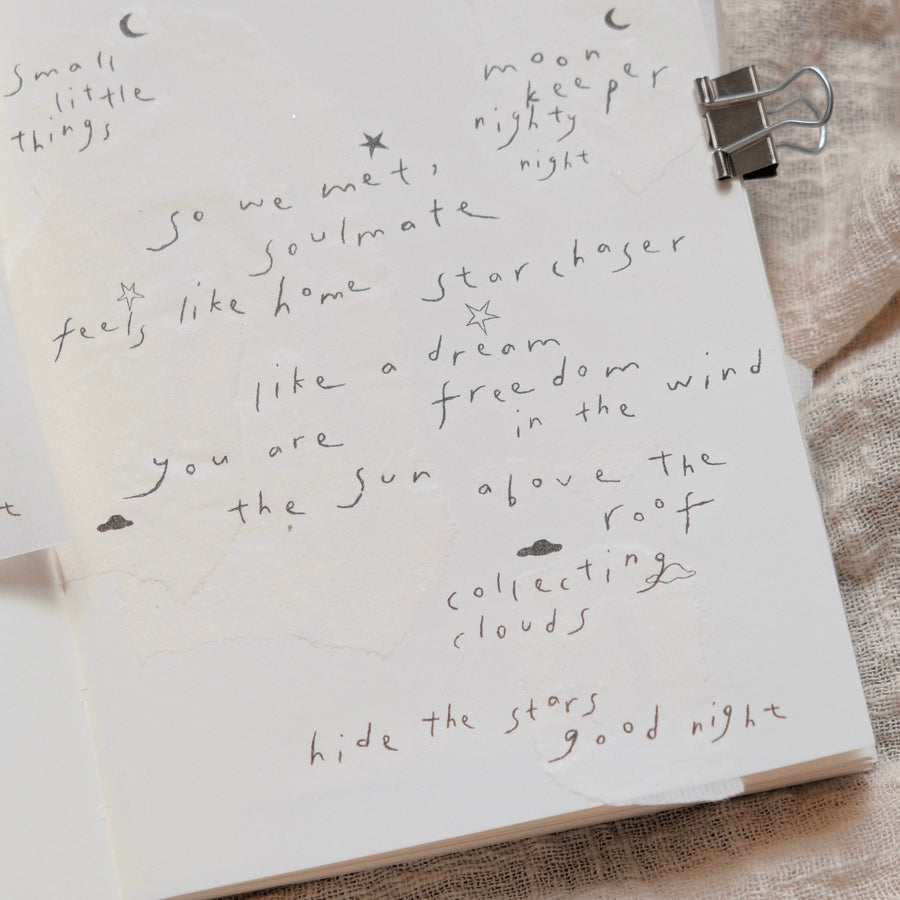 small
little
things
moon
keeper
nighty
night
so we met,
soulmate
feels like home
star chaser
like a dream
freedom
in the wind
you are
the sun
above the
roof
collecting
clouds
hide the stars
good night
t